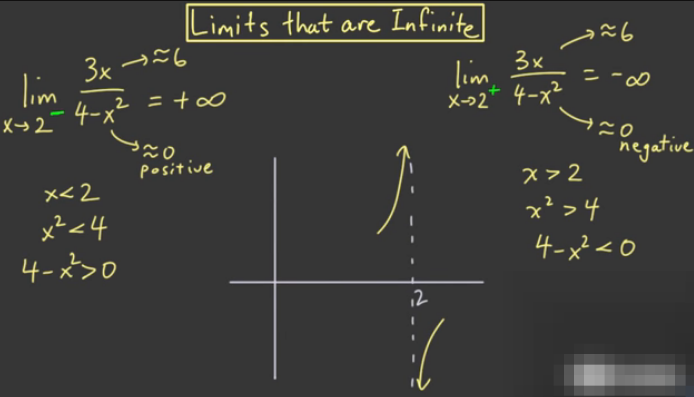 Limits that are Infinite
lim x→2⁻ 3x/(4-x²) = +∞
→≈6
→≈0
positive
x<2
x²<4
4-x²>0
lim x→2⁺ 3x/(4-x²) = -∞
→≈6
→≈0
negative
x>2
x²>4
4-x²<0
2